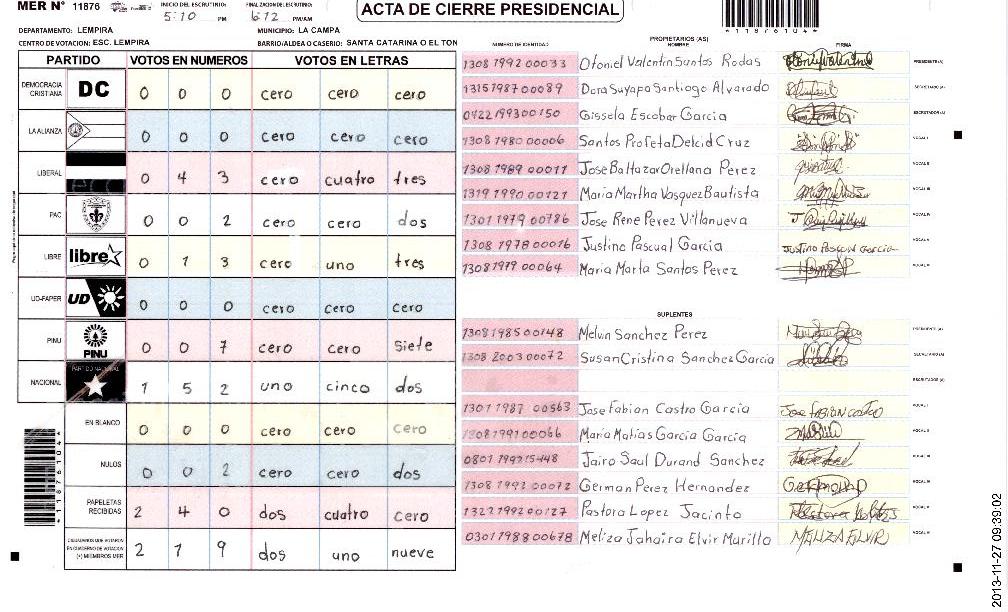 MER N° 11876
INICIO DEL ESCRUTINIO:
5:10 PM
FINALIZACION DEL ESCRUTINIO:
6:12 PM/AM
ACTA DE CIERRE PRESIDENCIAL
*11876104*
DEPARTAMENTO: LEMPIRA
MUNICIPIO: LA CAMPA
CENTRO DE VOTACION: ESC. LEMPIRA
BARRIO/ALDEA O CASERIO: SANTA CATARINA O EL TON
PARTIDO VOTOS EN NUMEROS VOTOS EN LETRAS
DEMOCRACIA CRISTIANA DC 0 0 0 cero cero cero
LA ALIANZA 0 0 0 cero cero cero
LIBERAL 0 4 3 cero cuatro tres
PAC 0 0 2 cero cero dos
LIBRE libre 0 1 3 cero uno tres
UD-FAPER UD 0 0 0 cero cero cero
PINU PINU 0 0 7 cero cero siete
NACIONAL PARTIDO NACIONAL 1 5 2 uno cinco dos
EN BLANCO 0 0 0 cero cero cero
NULOS 0 0 2 cero cero dos
PAPELETAS RECIBIDAS 2 4 0 dos cuatro cero
CIUDADANOS QUE VOTARON EN CUADERNO DE VOTACION (+) MIEMBROS MER 2 1 9 dos uno nueve
*11876104*
PROPIETARIOS (AS)
NUMERO DE IDENTIDAD NOMBRE FIRMA
1308 1992 00033 Otoniel Valentin Santos Rodas PRESIDENTE(A)
1315 1987 00089 Dora Suyapa Santiago Alvarado SECRETARIO(A)
0422 1993 00150 Gissela Escobar Garcia ESCRUTADOR(A)
1308 1980 00006 Santos Profeta Delcid Cruz VOCAL I
1308 1989 00011 Jose Baltazar Orellana Perez VOCAL II
1319 1990 00121 Maria Martha Vasquez Bautista VOCAL III
1301 1979 00786 Jose Rene Perez Villanueva VOCAL IV
1308 1978 00016 Justino Pascual Garcia Justino Pascual Garcia VOCAL V
1308 1979 00064 Maria Marta Santos Perez VOCAL VI
SUPLENTES
1308 1985 00148 Melvin Sanchez Perez PRESIDENTE(A)
1308 2003 00072 Susan Cristina Sanchez Garcia SECRETARIO(A)
ESCRUTADOR(A)
1301 1987 00563 Jose Fabian Castro Garcia Jose FABIAN CASTRO VOCAL I
1308 1991 00066 Maria Matias Garcia Garcia VOCAL II
0801 1992 15448 Jairo Saul Durand Sanchez VOCAL III
1308 1992 00072 German Perez Hernandez VOCAL IV
1322 1992 00127 Pastora Lopez Jacinto VOCAL V
0301 1988 00678 Meliza Jahaira Elvir Murillo MELIZA ELVIR VOCAL VI
2013-11-27 09:39:02